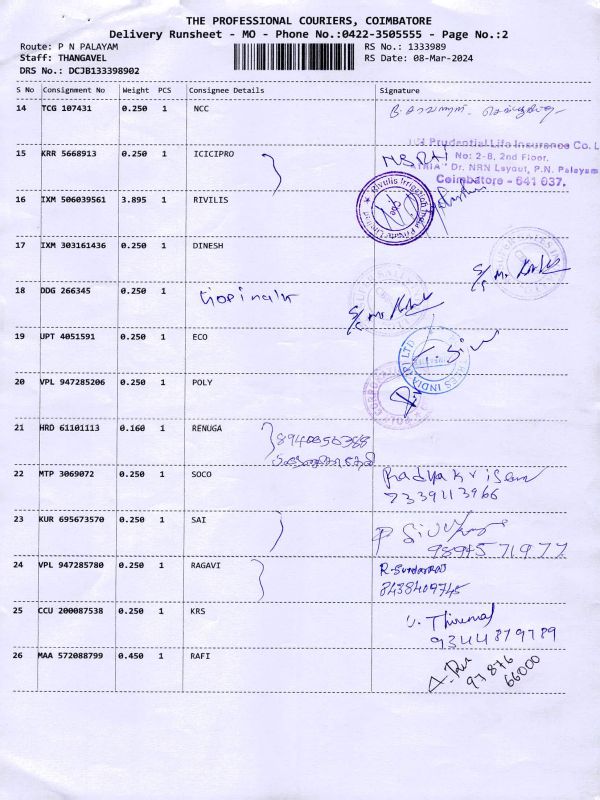 THE PROFESSIONAL COURIERS, COIMBATORE
Delivery Runsheet - MO - Phone No.:0422-3505555 - Page No.:2
Route: P N PALAYAM RS No.: 1333989
Staff: THANGAVEL RS Date: 08-Mar-2024
DRS No.: DCJB133398902
S No Consignment No Weight PCS Consignee Details Signature
14 TCG 107431 0.250 1 NCC
Prudential Life Insurance Co. L
15 KRR 5668913 0.250 1 ICICIPRO
No: 2-8, 2nd Floor,
Dr. NRN Layout, P.N. Palayam
Coimbatore - 641 037.
16 IXM 506039561 3.895 1 RIVILIS
Rivilis Irrigation India Private Limited
17 IXM 303161436 0.250 1 DINESH
18 DDG 266345 0.250 1 Gopinath
19 UPT 4051591 0.250 1 ECO
20 VPL 947285206 0.250 1 POLY
21 HRD 61101113 0.160 1 RENUGA
22 MTP 3069072 0.250 1 SOCO
7339113966
23 KUR 695673570 0.250 1 SAI
9894571977
24 VPL 947285780 0.250 1 RAGAVI R-Sundarraj
8438409745
25 CCU 200087538 0.250 1 KRS
9344879789
26 MAA 572088799 0.450 1 RAFI
97876
66000